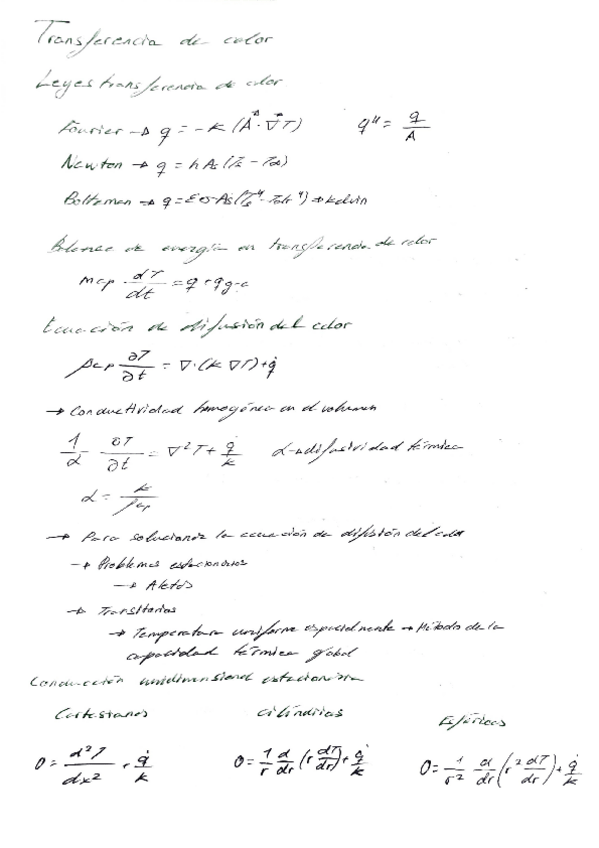 Transferencia de calor
Leyes transferencia de calor
Fourier → q = -k (A⃗ · ∇⃗T) q'' = q/A
Newton → q = h As (Ts - T∞)
Boltzman → q = εσAs(Ts⁴ - Talr⁴) → Kelvin
Balance de energía en transferencia de calor
m cp dT/dt = q + qg-c
Ecuación de difusión del calor
ρcp ∂T/∂t = ∇·(k ∇T) + q̇
→ Conductividad homogénea en el volumen
1/α ∂T/∂t = ∇²T + q̇/k α → difusividad térmica
α = k/ρcp
→ Para solucionar la ecuación de difusión del calor
→ Problemas estacionarios
→ Aletas
→ Transitorios
→ Temperatura uniforme espacialmente → Método de la
capacidad térmica global
Conducción unidimensional estacionaria
Cartesianas Cilíndricas Esféricas
0 = d²T/dx² + q̇/k 0 = 1/r d/dr (r dT/dr) + q̇/k 0 = 1/r² d/dr (r² dT/dr) + q̇/k